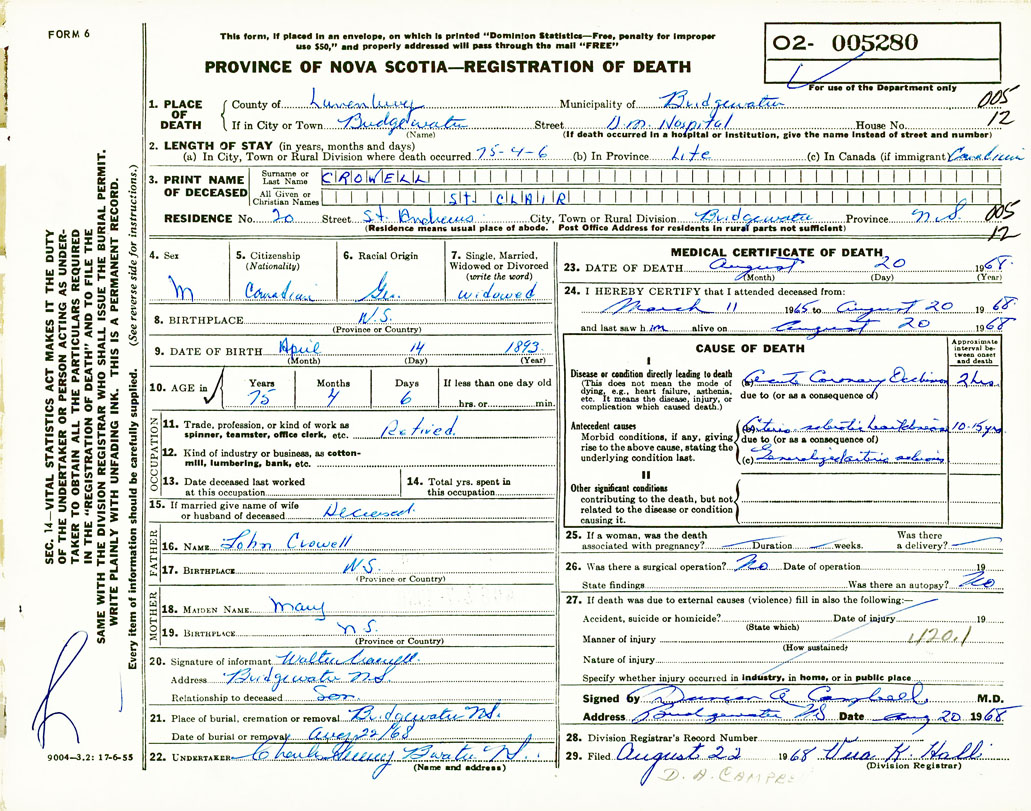 FORM 6
This form, if placed in an envelope, on which is printed “Dominion Statistics—Free, penalty for improper
use $50,” and properly addressed will pass through the mail “FREE”
PROVINCE OF NOVA SCOTIA—REGISTRATION OF DEATH
02- 005280
For use of the Department only
005
12
1. PLACE OF DEATH
County of Lunenburg Municipality of Bridgewater
If in City or Town Bridgewater Street D.M. Hospital House No.
(Name) (If death occurred in a hospital or institution, give the name instead of street and number)
2. LENGTH OF STAY (in years, months and days)
(a) In City, Town or Rural Division where death occurred 75-4-6 (b) In Province Life (c) In Canada (if immigrant) Canadian
3. PRINT NAME OF DECEASED
Surname or Last Name CROWELL
All Given or Christian Names ST. CLAIR
RESIDENCE No. 20 Street St. Andrews City, Town or Rural Division Bridgewater Province N.S 005
(Residence means usual place of abode. Post Office Address for residents in rural parts not sufficient) 12
4. Sex
M
5. Citizenship
(Nationality)
Canadian
6. Racial Origin
Ger.
7. Single, Married,
Widowed or Divorced
(write the word)
widowed
8. BIRTHPLACE N.S.
(Province or Country)
9. DATE OF BIRTH April 14 1893
(Month) (Day) (Year)
10. AGE in
Years Months Days If less than one day old
75 4 6 hrs. or min.
OCCUPATION
11. Trade, profession, or kind of work as
spinner, teamster, office clerk, etc. Retired.
12. Kind of industry or business, as cotton-
mill, lumbering, bank, etc.
13. Date deceased last worked
at this occupation
14. Total yrs. spent in
this occupation
15. If married give name of wife
or husband of deceased Deceased.
FATHER
16. NAME John Crowell
17. BIRTHPLACE N.S.
(Province or Country)
MOTHER
18. MAIDEN NAME Mary
19. BIRTHPLACE N.S.
(Province or Country)
20. Signature of informant Walter Crowell.
Address Bridgewater NS
Relationship to deceased Son
21. Place of burial, cremation or removal Bridgewater N.S.
Date of burial or removal Aug 22/68
22. UNDERTAKER B'water N.S.
(Name and address)
MEDICAL CERTIFICATE OF DEATH
23. DATE OF DEATH August 20 1968.
(Month) (Day) (Year)
24. I HEREBY CERTIFY that I attended deceased from:
March 11 1965 to August 20 1968.
and last saw him alive on August 20 1968
CAUSE OF DEATH
Approximate
interval be-
tween onset
and death
I
Disease or condition directly leading to death
(This does not mean the mode of
dying, e.g., heart failure, asthenia,
etc. It means the disease, injury, or
complication which caused death.)
(a) Acute Coronary Occlusion 2 hrs.
due to (or as a consequence of)
Antecedent causes
Morbid conditions, if any, giving
rise to the above cause, stating the
underlying condition last.
(b) Arterio sclerotic heart disease 10-15 yrs
due to (or as a consequence of)
(c) Generalized arterio sclerosis
II
Other significant conditions
contributing to the death, but not
related to the disease or condition
causing it.
25. If a woman, was the death
associated with pregnancy? Duration weeks. Was there
a delivery?
26. Was there a surgical operation? No Date of operation 19
State findings Was there an autopsy? No
27. If death was due to external causes (violence) fill in also the following:—
Accident, suicide or homicide? Date of injury 19
(State which)
Manner of injury 420.1
(How sustained)
Nature of injury
Specify whether injury occurred in industry, in home, or in public place
Signed by Duncan A. Campbell M.D.
Address Bridgewater NS Date Aug 20 1968
28. Division Registrar's Record Number
29. Filed August 22 1968
(Division Registrar)
D. A. CAMPBE
SEC. 14—VITAL STATISTICS ACT MAKES IT THE DUTY
OF THE UNDERTAKER OR PERSON ACTING AS UNDER-
TAKER TO OBTAIN ALL THE PARTICULARS REQUIRED
IN THE “REGISTRATION OF DEATH” AND TO FILE THE
SAME WITH THE DIVISION REGISTRAR WHO SHALL ISSUE THE BURIAL PERMIT.
WRITE PLAINLY WITH UNFADING INK. THIS IS A PERMANENT RECORD.
Every item of information should be carefully supplied. (See reverse side for instructions.)
9004—3.2: 17-6-55